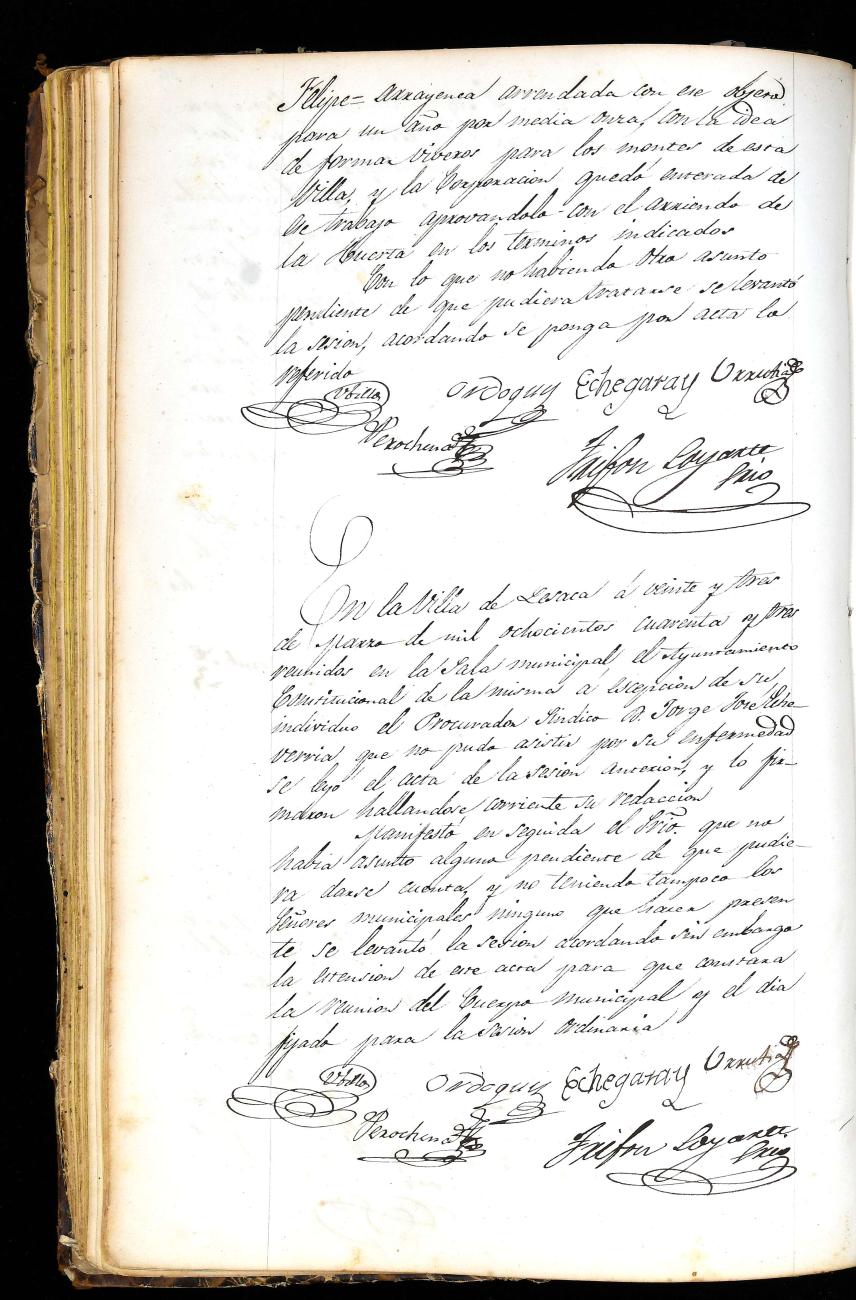 Felipe= Arrayenea arrendada con ese objeto
para un año por media onza, con la idea
de formar viveros para los montes de esta
Villa, y la Corporacion quedó enterada de
ese trabajo aprovandolo con el arriendo de
la Huerta en los terminos indicados
Con lo que no habiendo otro asunto
pendiente de que pudiera tratarse se levantó
la sesion, acordando se ponga por acta lo
referido
Ubilla Ordoquy Echegaray Urrutia
Perochena
Fraifon Loyarte
Srio
En la Villa de Lesaca á veinte y tres
de Marzo de mil ochocientos cuarenta y tres
reunidos en la Sala municipal el Ayuntamiento
Constitucional de la misma á escepcion de su
individuo el Procurador Sindico D. Jorge José Eche-
verria que no pudo asistir por su enfermedad
se leyó el acta de la sesion anterior, y lo fir-
maron hallandose corriente su redaccion
Manifestó en seguida el Srio. que no
habia asunto alguno pendiente de que pudie-
ra darse cuenta, y no teniendo tampoco los
Señores municipales ninguno que hacer presen
te se levantó la sesion acordando sin embargo
la estension de este acta para que constara
la reunion del Cuerpo municipal y el dia
fijado para la sesion ordinaria
Ubilla Ordoquy Echegaray Urrutia
Perochena
Fraifon Loyarte
Srio